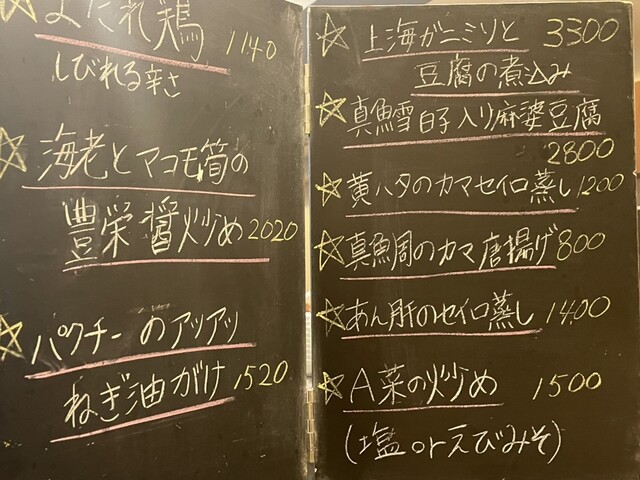 よだれ鶏 1140
しびれる辛さ
海老とマコモ筍の
豊栄醤炒め 2020
パクチーのアツアツ
ねぎ油がけ 1520
上海ガニミソと 3300
豆腐の煮込み
真鱈白子入り麻婆豆腐
2800
黄ハタのカマセイロ蒸し 1200
真鯛のカマ唐揚げ 800
あん肝のセイロ蒸し 1400
A菜の炒め 1500
(塩orえびみそ)